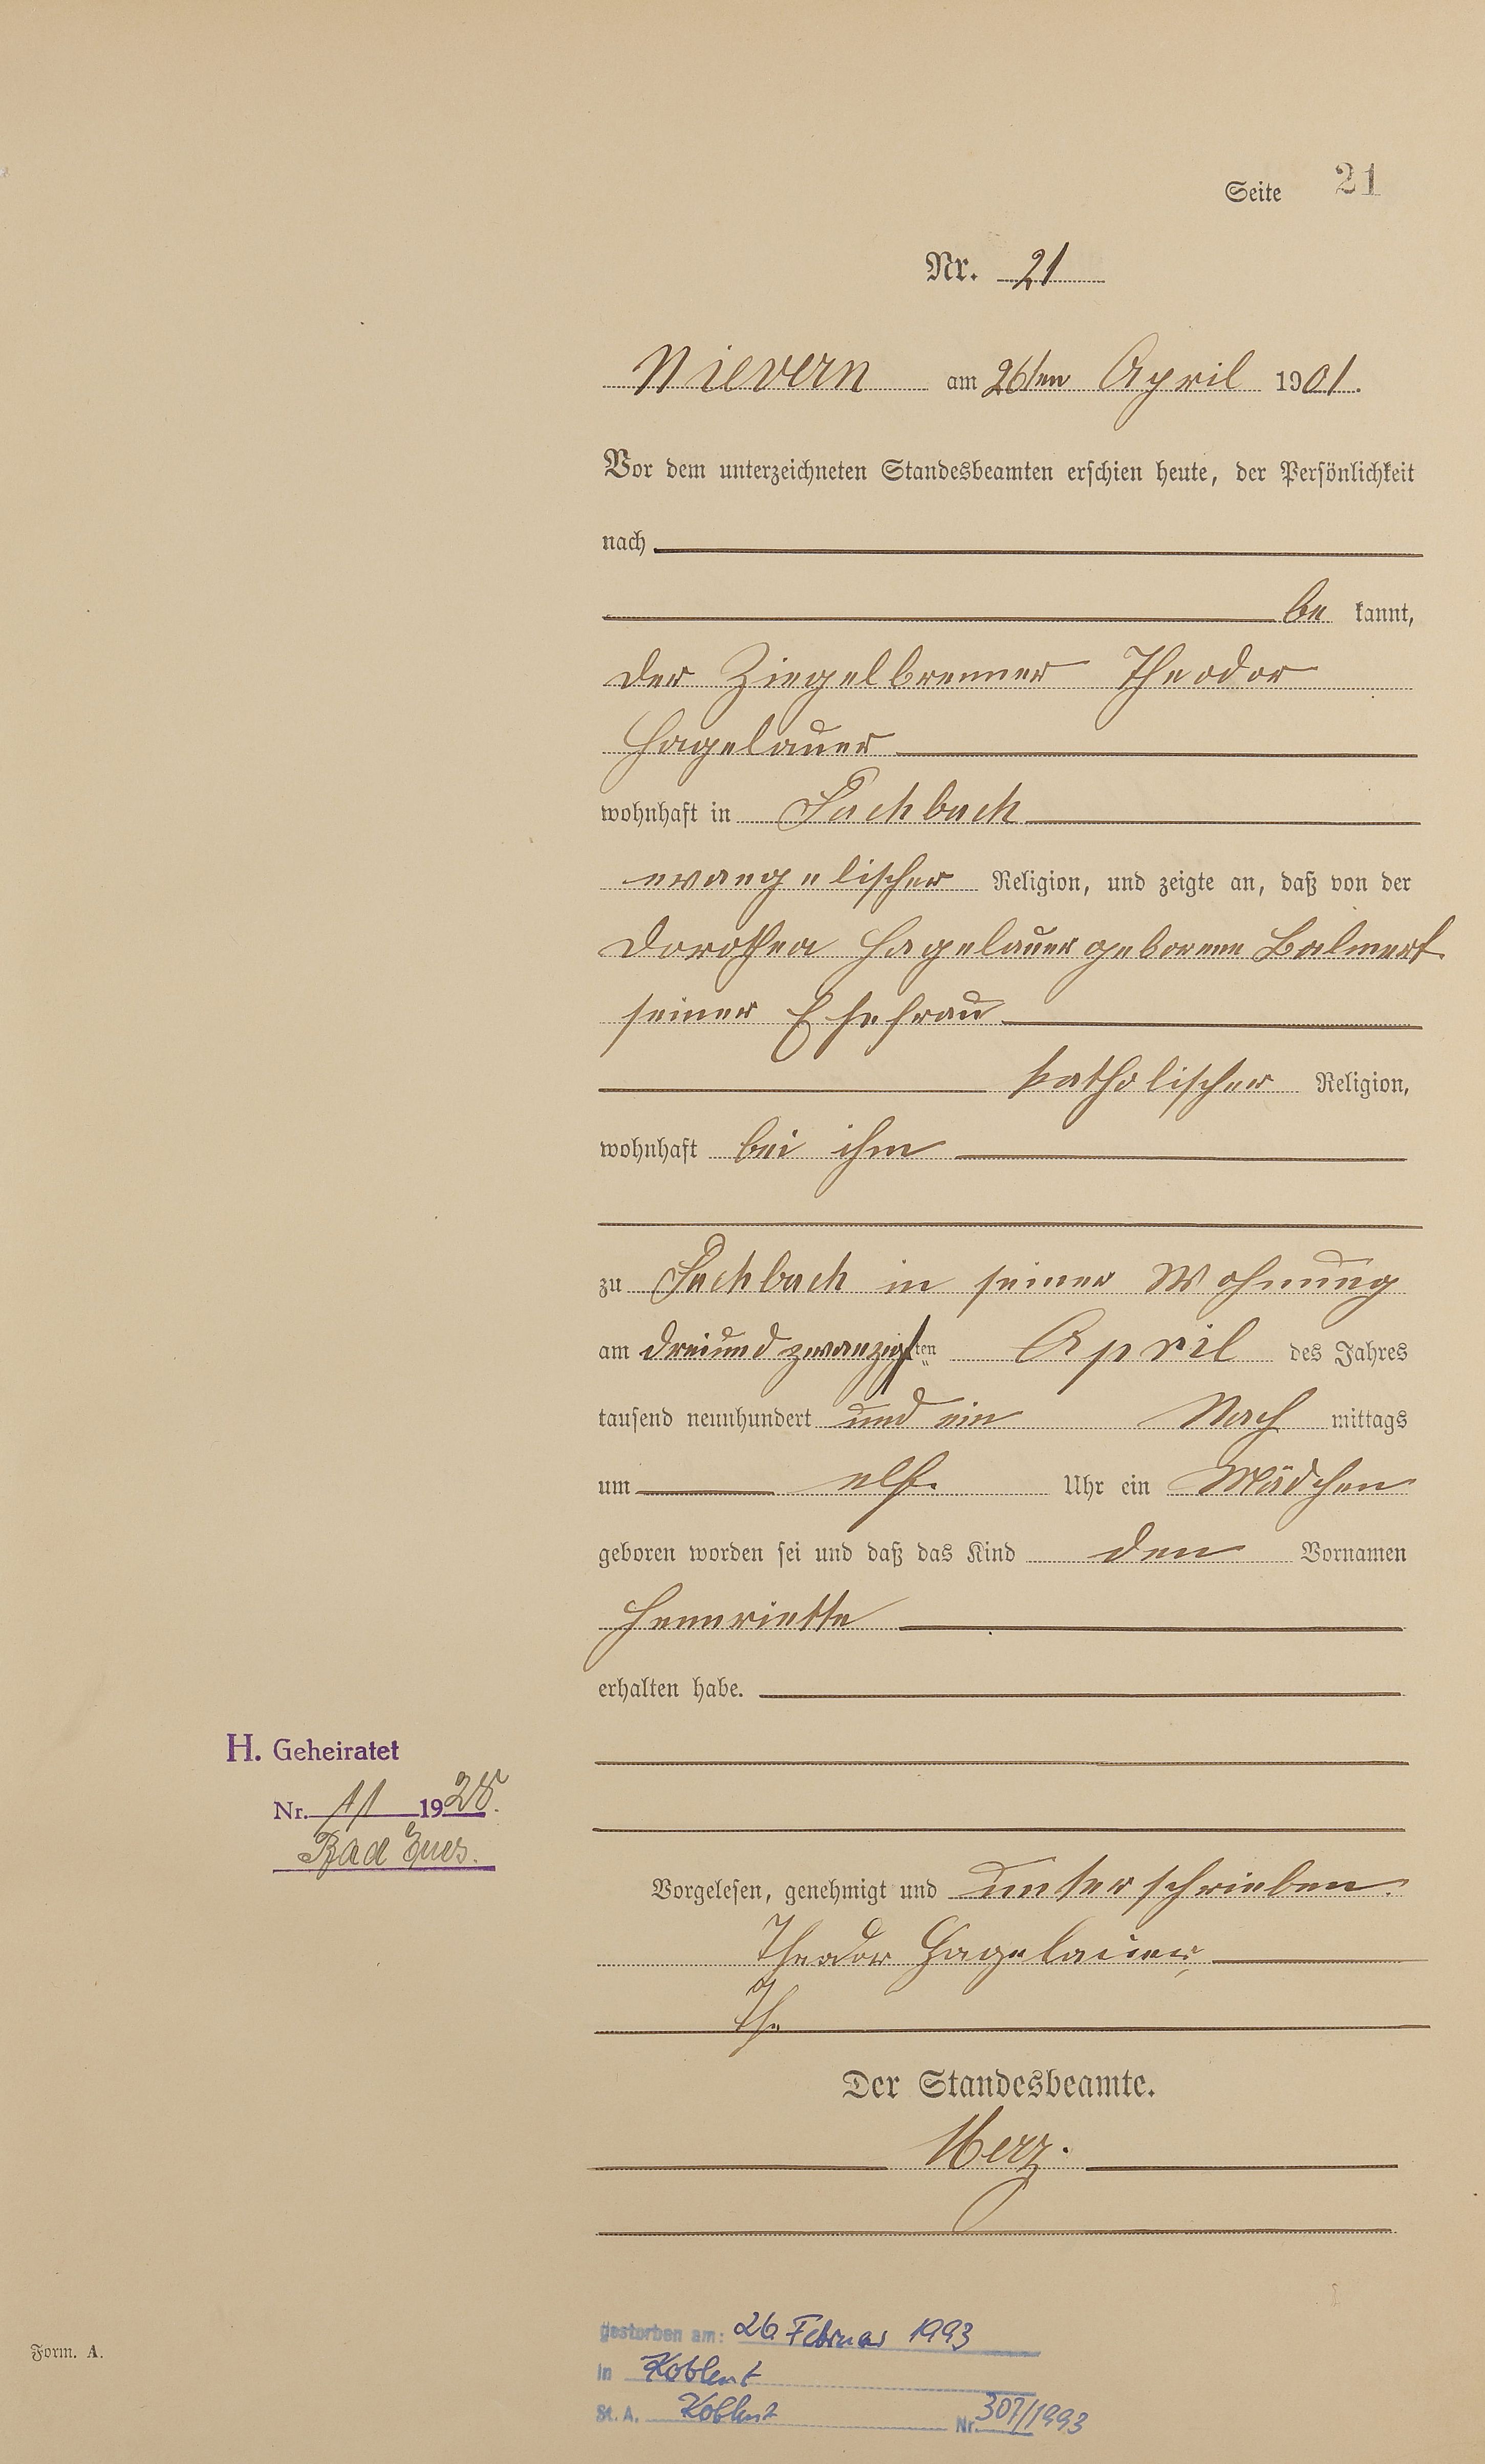 Seite 21
Nr. 21
Nievern am 26ten April 1901.
Vor dem unterzeichneten Standesbeamten erschien heute, der Persönlichkeit
nach
be kannt,
der Ziegelbrenner Theodor
Hagelauer
wohnhaft in Fachbach
evangelischer Religion, und zeigte an, daß von der
Dorothea Hagelauer geborene Balmert
seiner Ehefrau
katholischer Religion,
wohnhaft bei ihm
zu Fachbach in seiner Wohnung
am dreiundzwanzigsten April des Jahres
tausend neunhundert und ein Nach mittags
um elf Uhr ein Mädchen
geboren worden sei und daß das Kind den Vornamen
Hennriette
erhalten habe.
H. Geheiratet
Nr. 11 1928.
Bad Ems.
Vorgelesen, genehmigt und unterschrieben.
Theodor Hagelauer
Th.
Der Standesbeamte.
Merz.
gestorben am: 26. Februar 1993
in Koblenz
St. A. Koblenz Nr. 307/1993
Form. A.